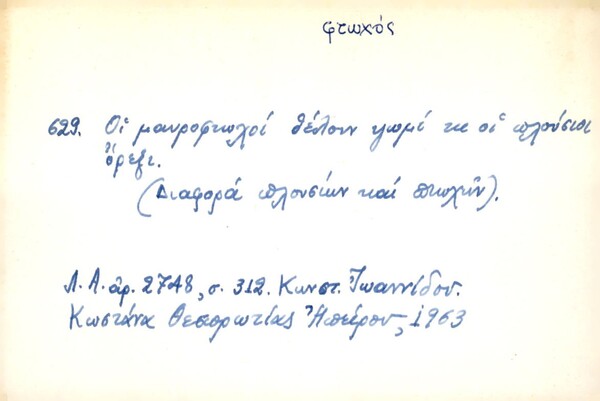 φτωχός
629. Οἱ μαυροφτωχοί θέλουν ψωμί κι οἱ πλούσιοι
ὄρεξι.
(Διαφορά πλουσίων καί πτωχῶν).
Λ.Α. ἀρ. 2748, σ. 312. Κωνστ. Ἰωαννίδου.
Κωστάνα Θεσπρωτίας Ἠπείρου, 1963